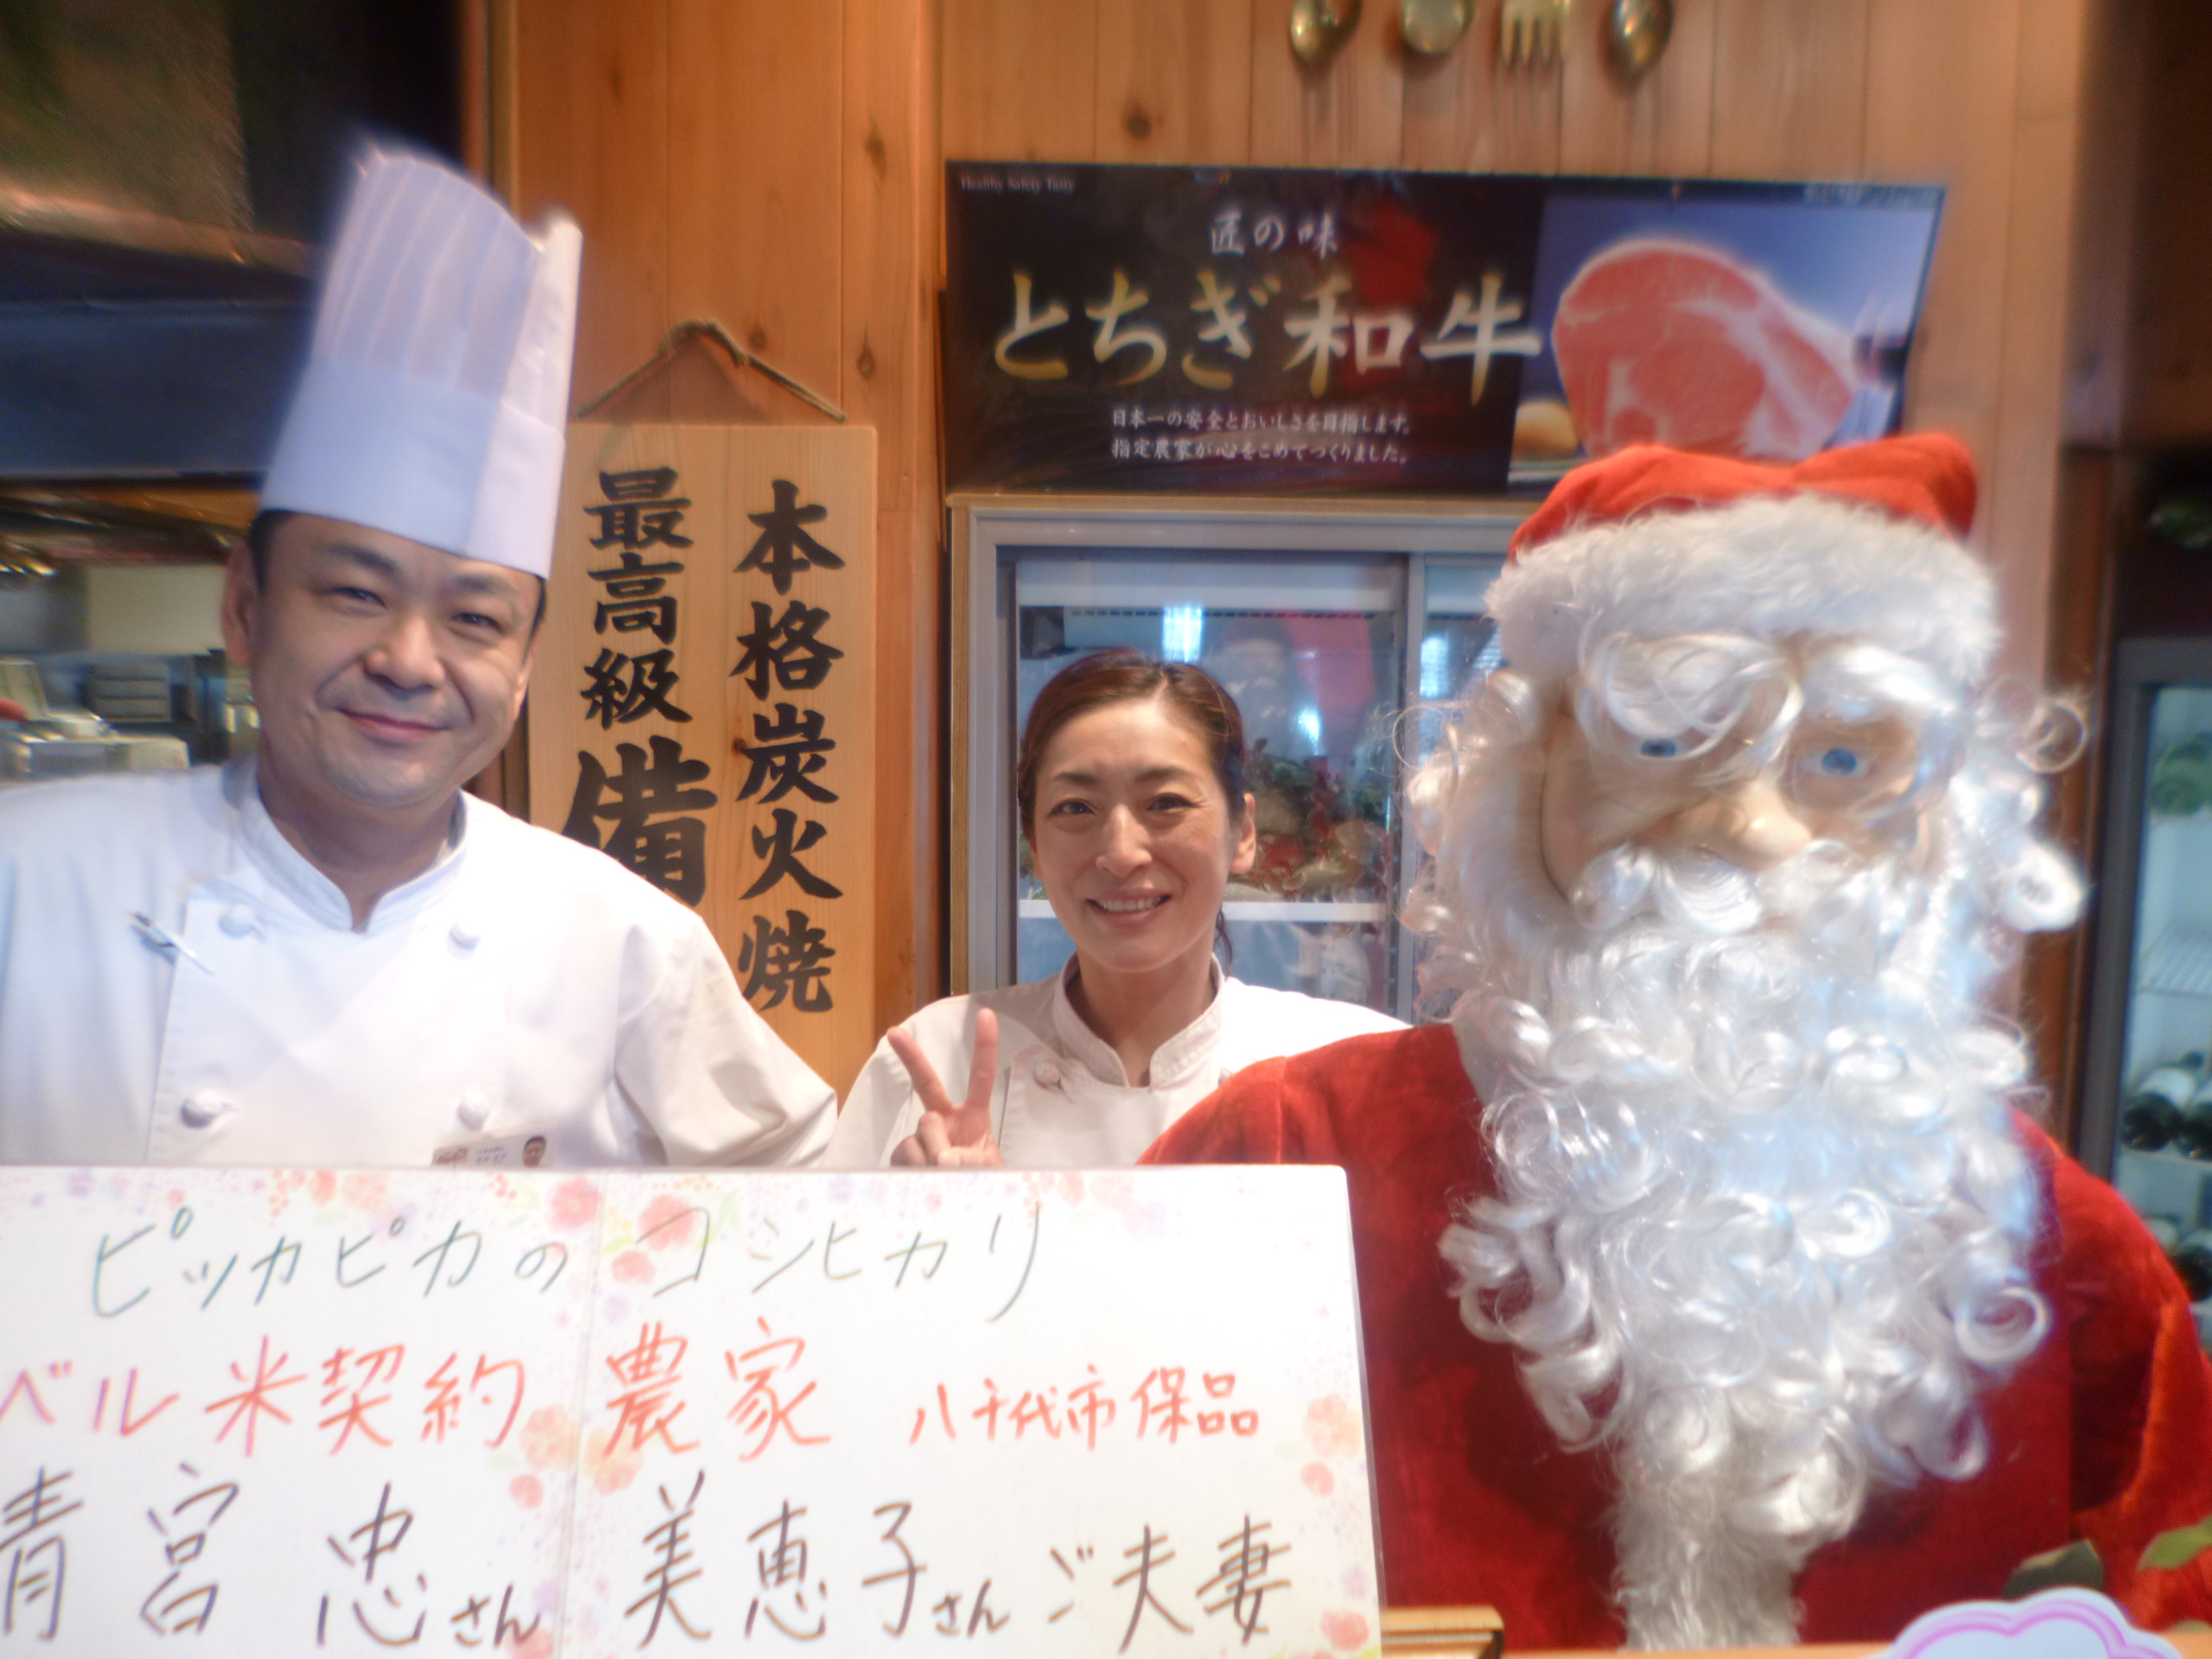 Healthy Safety Tasty
匠の味
とちぎ和牛
日本一の安全とおいしさを目指します。
指定農家が心をこめてつくりました。
本格炭火焼
最高級備
ピッカピカのコシヒカリ
ベル米契約農家 八千代市保品
青宮 忠さん 美恵子さんご夫妻